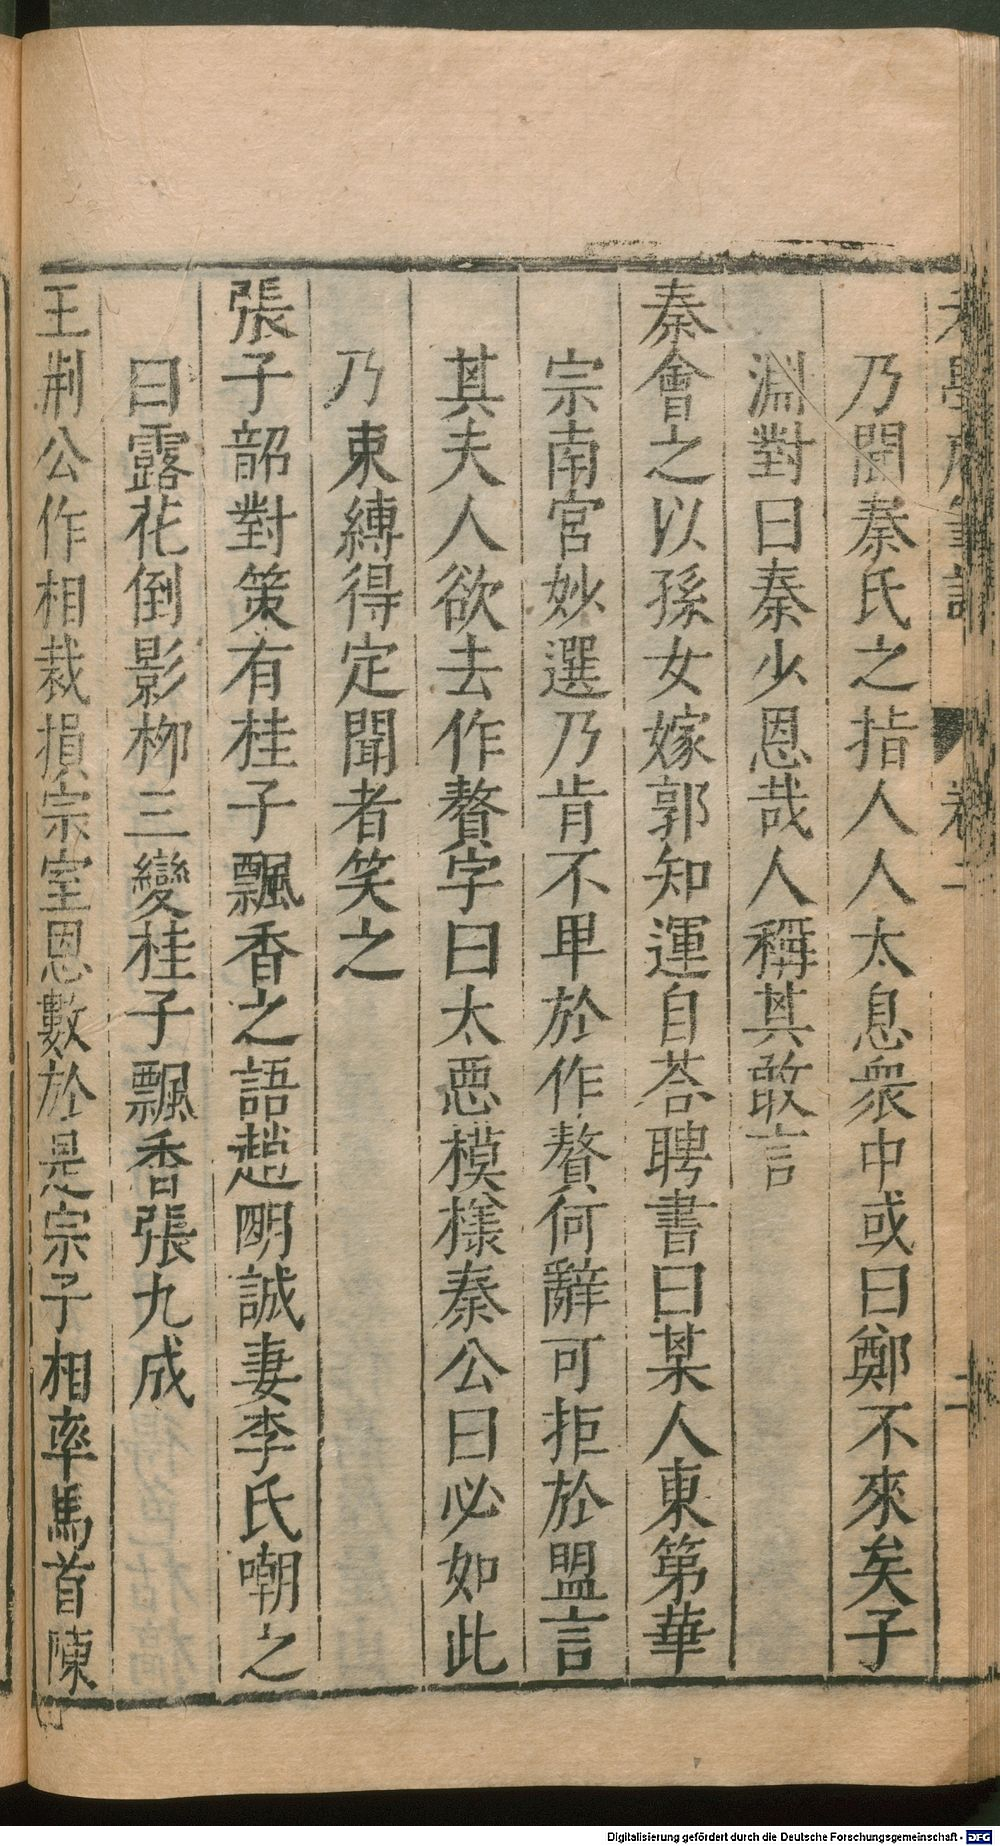 老學庵筆記 卷二 二
乃聞秦氏之指人人太息衆中或曰鄭不來矣子
淵對曰秦少恩哉人稱其敢言
秦會之以孫女嫁郭知運自荅聘書曰某人東第華
宗南宮妙選乃肯不卑於作贅何辭可拒於盟言
其夫人欲去作贅字曰太惡模樣秦公曰必如此
乃束縛得定聞者笑之
張子韶對策有桂子飄香之語趙明誠妻李氏嘲之
曰露花倒影柳三變桂子飄香張九成
王荆公作相裁損宗室恩數於是宗子相率馬首陳
Digitalisierung gefördert durch die Deutsche Forschungsgemeinschaft - DFG